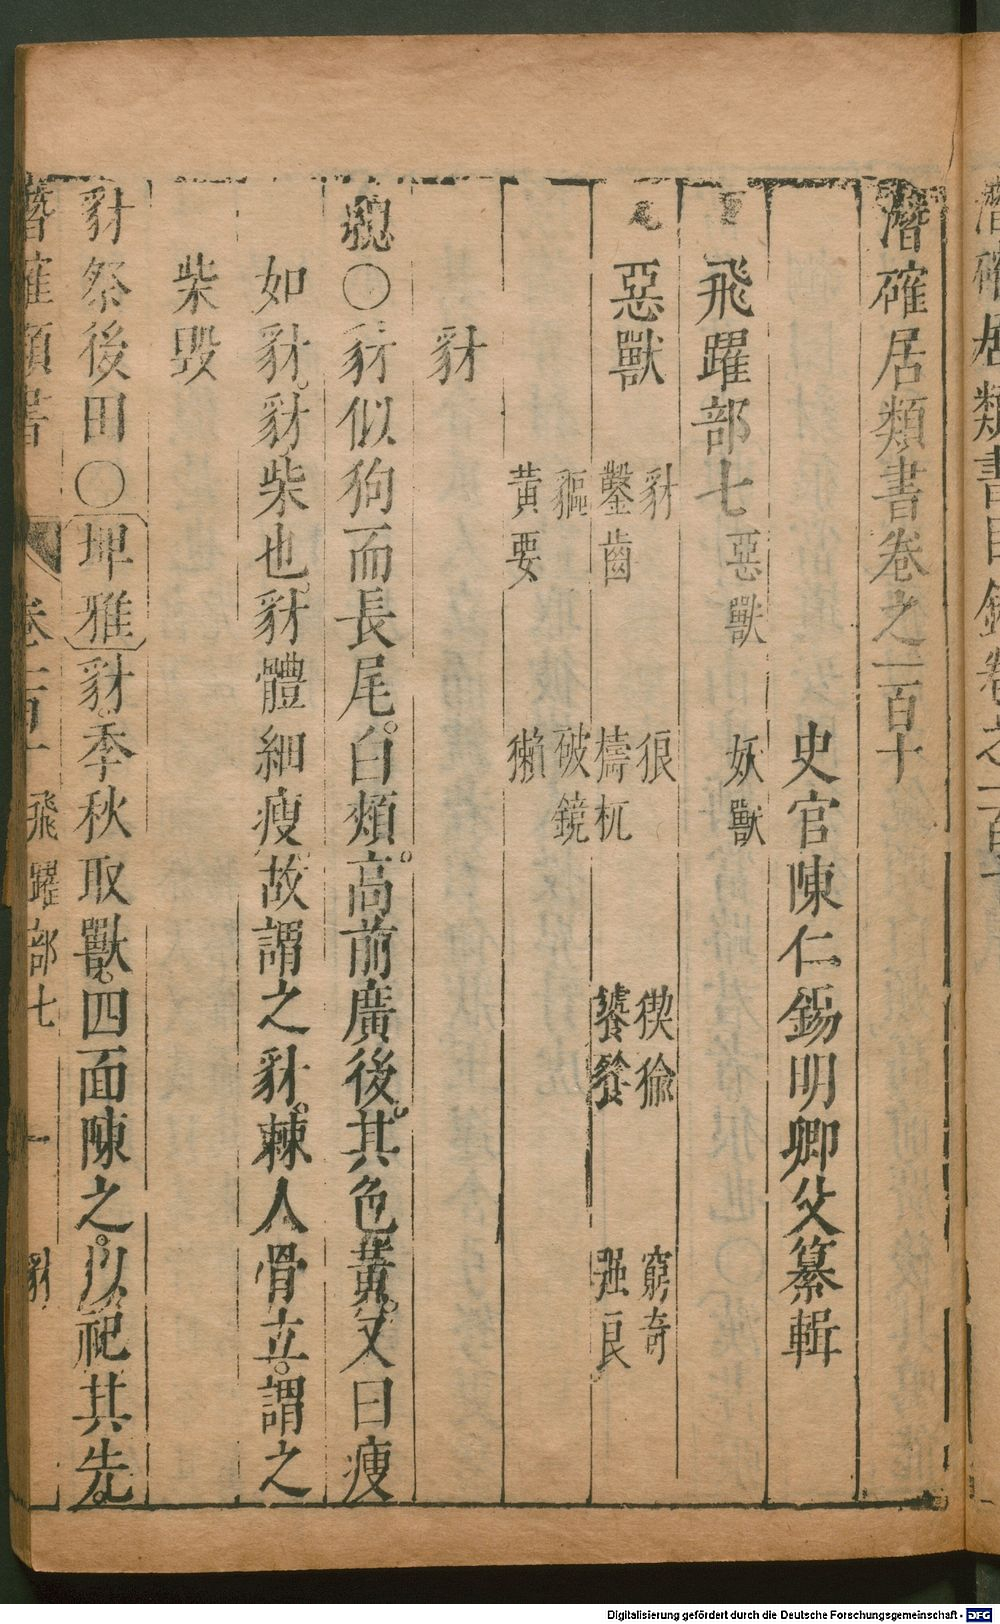 潛確居類書卷之一百十
史官陳仁錫明卿父纂輯
飛躍部七 惡獸 妖獸
惡獸
豺 狼 猰㺄 窮奇
鑿齒 檮杌 饕餮 强良
貙 破鏡
黄要 獺
豺
䝠○豺似狗而長尾白頰高前廣後其色黃又曰瘦
如豺豺柴也豺體細瘦故謂之豺棘人骨立謂之
柴毀
豺祭後田○埤雅豺季秋取獸四面陳之以祀其先
潛確類書 卷一百十 飛躍部七 一 豺
Digitalisierung gefördert durch die Deutsche Forschungsgemeinschaft - DFG